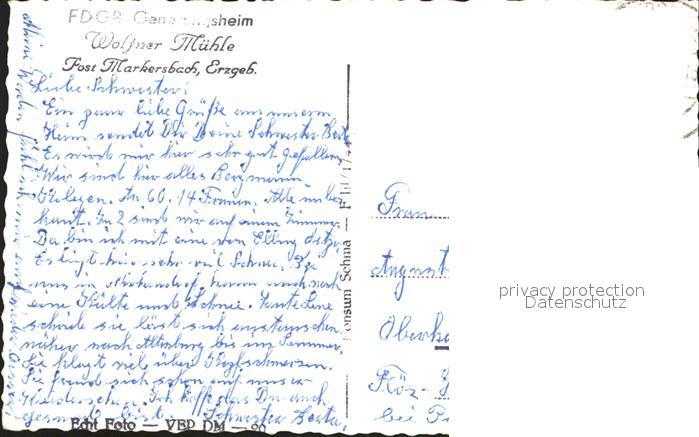 FDGB-Genesungsheim
Wolfner Mühle
Post Markersbach, Erzgeb.
Liebe Schwester!
Ein paar liebe Grüße aus unserm
Heim sendet Dir Deine Schwester Berta
Es wird mir hier sehr gut gefallen,
Wir sind hier alles Bergmann
Kolegen. An 60. 14 Frauen. Alle unbe-
kannt. In 2 sind wir auf einem Zimmer
Da bin ich mit eine von
Es liegt hier sehr viel Schnee. Bei
uns in auch noch
eine Kälte und Schnee. Lene
schrieb sie läst sich austauschen
näher nach Altenburg bis im Sommer.
Sie klagt viel über Kopfschmerzen.
Sie freud sich schon auf unser
Wiedersehen. Ich hoffe das Du auch
gesund bist. Schwester Berta.
Echt Foto — VEB DM — 20
Konsum Schma —
Frau
August
Oberh
bei
privacy protection
Datenschutz